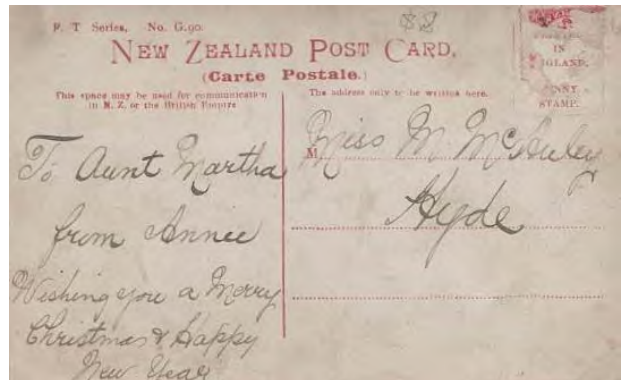 P. T Series, No. G.90.
88
NEW ZEALAND POST CARD.
(Carte Postale.)
This space may be used for communication
in N. Z. or the British Empire
The address only to be written here.
IN
STAMP.
To Aunt Martha
from Annie
Wishing you a Merry
Christmas & Happy
New Year
Miss M McAuley
Hyde